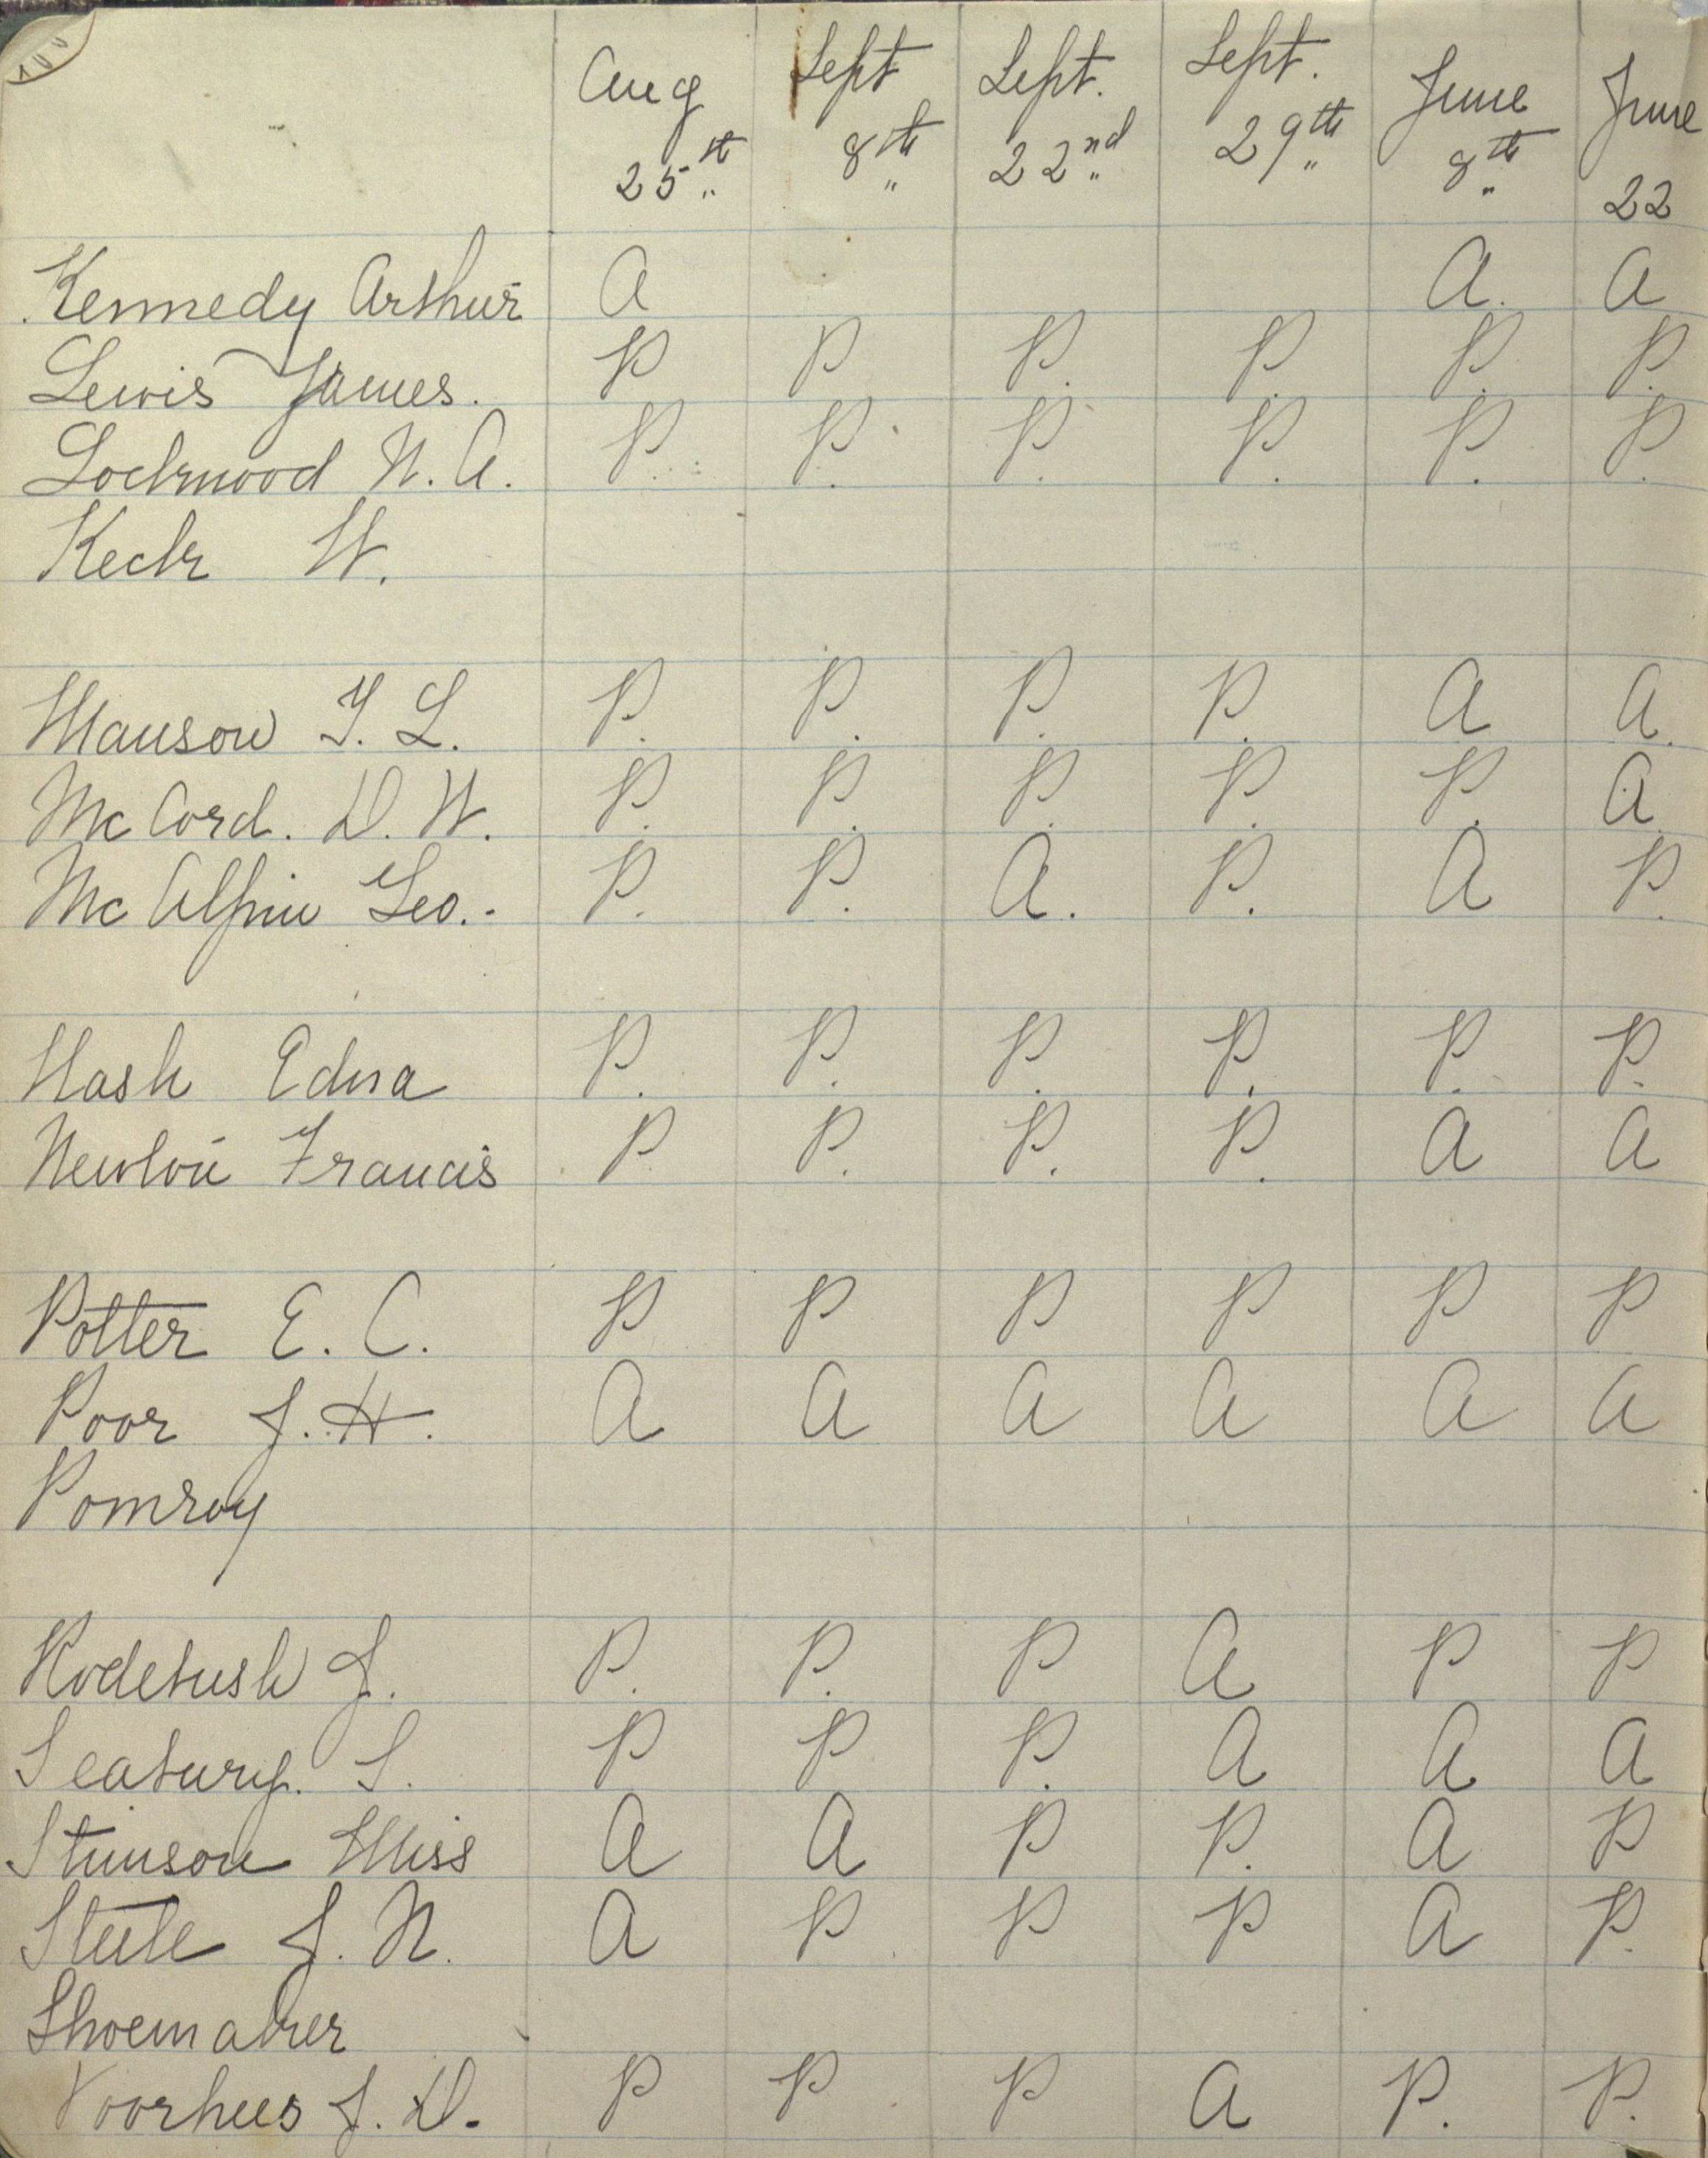 Aug 25th Sept 8th Sept. 22nd Sept. 29th June 8th June 22
Kennedy Arthur A A. A
Lewis James. P P. P. P. P. P.
Lockwood N. A. P. P. P. P. P. P.
Keck W.
Manson T. L. P. P. P. P. A A.
McCord. D. W. P. P. P. P. P. A
McAlpin Geo.- P. P. A. P. A P.
Nash Edna P. P. P. P. P. P.
Newlon Francis P. P. P. P. A A
Potter E. C. P P P P P P
Poor J. H. A A A A A A
Pomroy
Rodebush J. P. P. P A P P
Seabury. S. P P P. A A A
Stimson Miss A A P P. A P
Steele J. N. A P P P A P.
Shoemaker
Voorhees J. D. P P P A P. P.